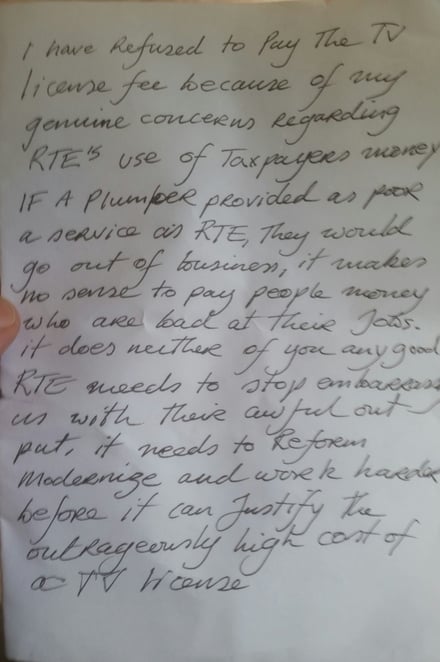 I have Refused to Pay The TV
license fee because of my
genuine concerns regarding
RTE's use of Taxpayers money
IF A Plumber provided as poor
a service as RTE, They would
go out of business, it makes
no sense to pay people money
who are bad at their Jobs.
it does neither of you any good
RTE needs to stop embarrass
us with their awful out-
put, it needs to Reform
Modernize and work harder
before it can Justify the
outrageously high cost of
a TV license